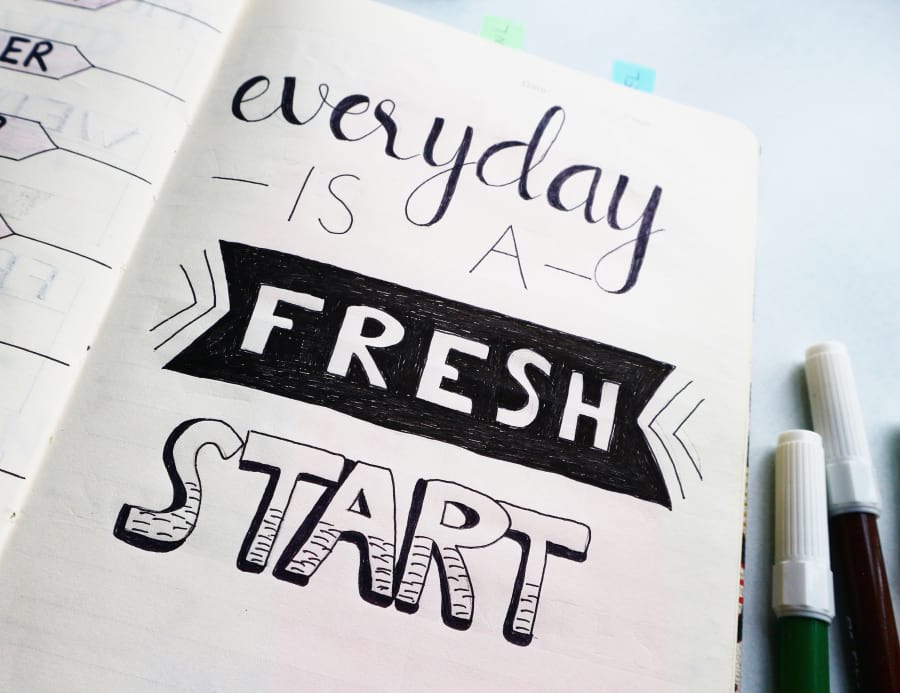 everyday
— IS A —
FRESH
START
ER